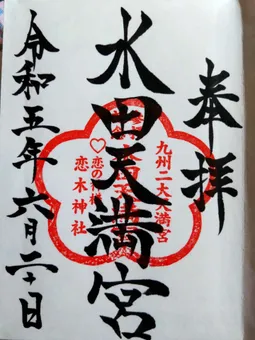 奉拝
九州二大天満宮
水田天満宮
♡恋の神様
恋木神社
令和五年六月二十日